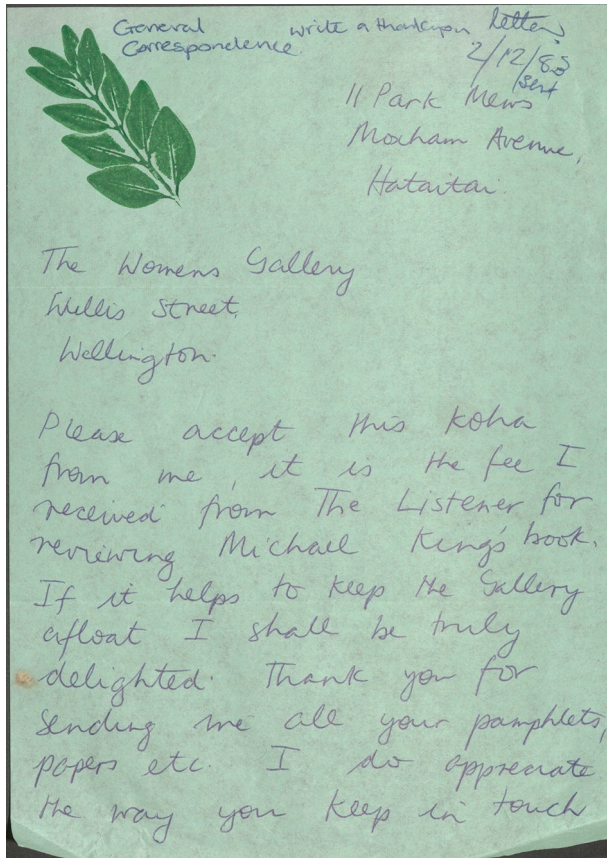 General write a thankyou letter
Correspondence.
2/12/83
sent
11 Park Mews
Moxham Avenue,
Hataitai.
The Womens Gallery
Willis Street,
Wellington.
Please accept this koha
from me, it is the fee I
received from The Listener for
reviewing Michael King's book.
If it helps to keep the Gallery
afloat I shall be truly
delighted. Thank you for
sending me all your pamphlets,
papers etc. I do appreciate
the way you keep in touch